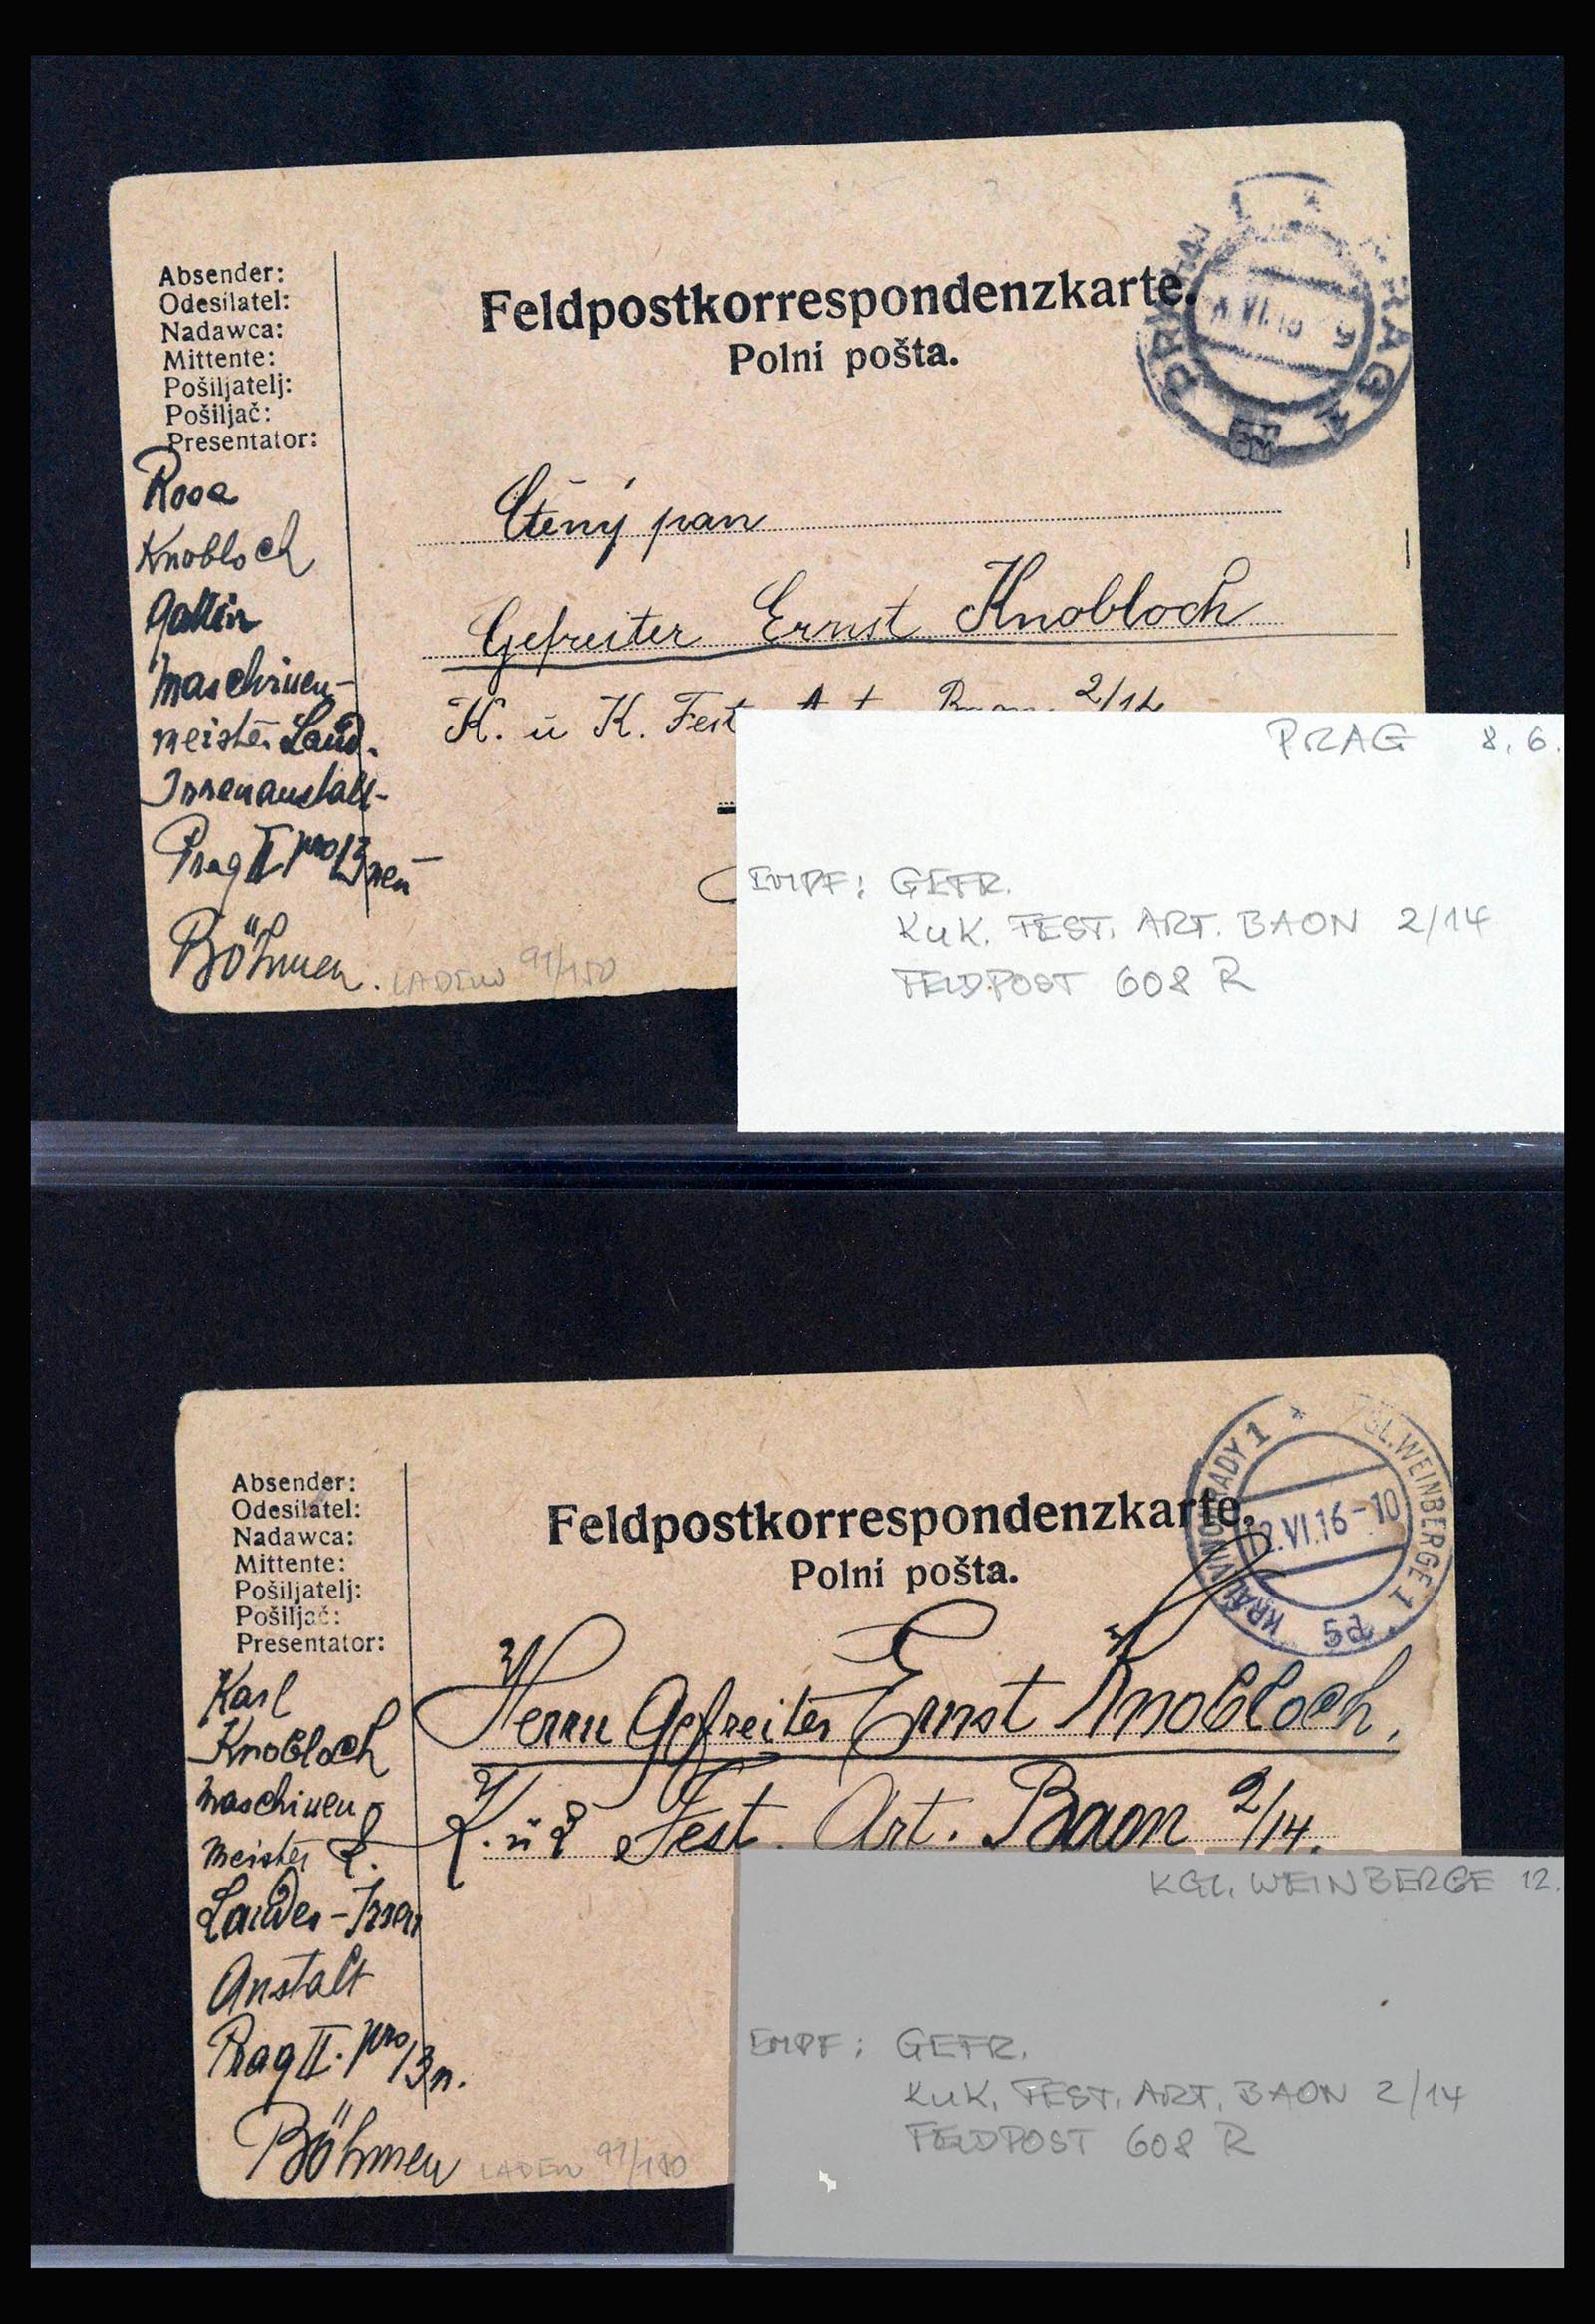 Absender:
Odesílatel:
Nadawca:
Mittente:
Pošiljatelj:
Pošiljač:
Presentator:
Feldpostkorrespondenzkarte.
Polní pošta.
PRAG
VI.16
Rosa
Knobloch
Gattin
Maschinen-
meister Land.
Irrenanstalt-
Prag II pro Bneń
Böhmen.
LADEN 91/150
Ctěný pan
Gefreiter Ernst Knobloch
K. u K. Fest. Art. Baon. 2/14
PRAG 8.6.
EMPF: GEFR.
KuK. FEST. ART. BAON 2/14
FELDPOST 608 R
Absender:
Odesílatel:
Nadawca:
Mittente:
Pošiljatelj:
Pošiljač:
Presentator:
Feldpostkorrespondenzkarte.
Polní pošta.
KRÁL. VINOHRADY 1 * KGL. WEINBERGE 1
12.VI.16-10
5d
Karl
Knobloch
Maschinen
meister L.
Landes-Irren
Anstalt
Prag II. pro/Bn.
Böhmen
LADEN 91/180
Herrn Gefreiter Ernst Knobloch,
K. u K Fest. Art. Baon 2/14.
KGL. WEINBERGE 12.
EMPF: GEFR.
KuK. FEST. ART. BAON 2/14
FELDPOST 608 R